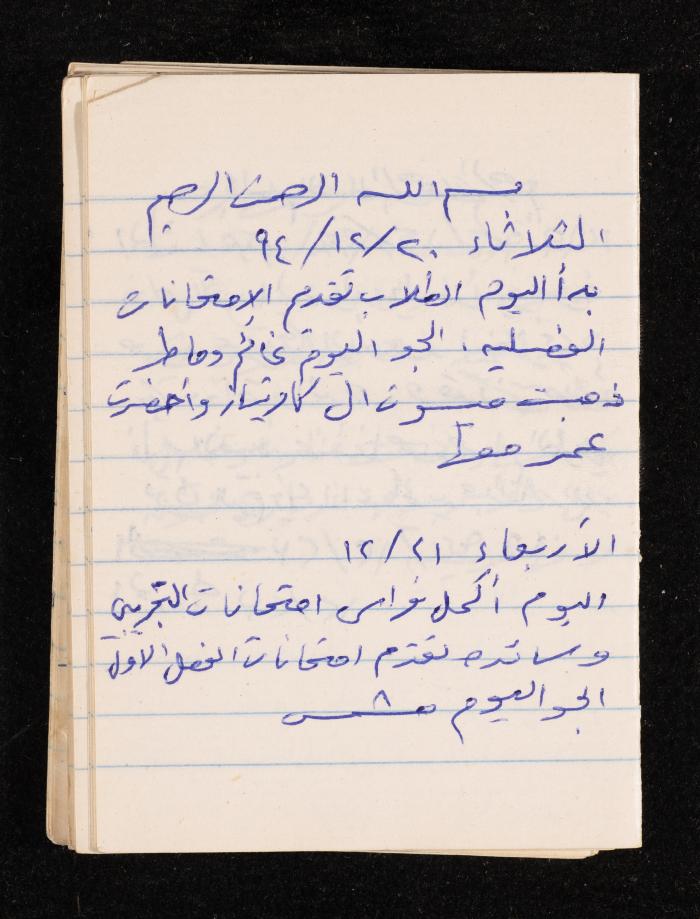 بسم الله الرحمن الرحيم
الثلاثاء ٢٠/١٢/٩٤
بدأ اليوم الطلاب تقدم الإمتحانات
الفصليه، الجو اليوم غائم وماطر
ذهبت ميسون ال واحضرت
عمر معها
الأربعاء ٢١/١٢
اليوم أكمل فراس امتحانات التجريبي
وسائده تقدم امتحانات الفصل الاول
الجو اليوم مشمس